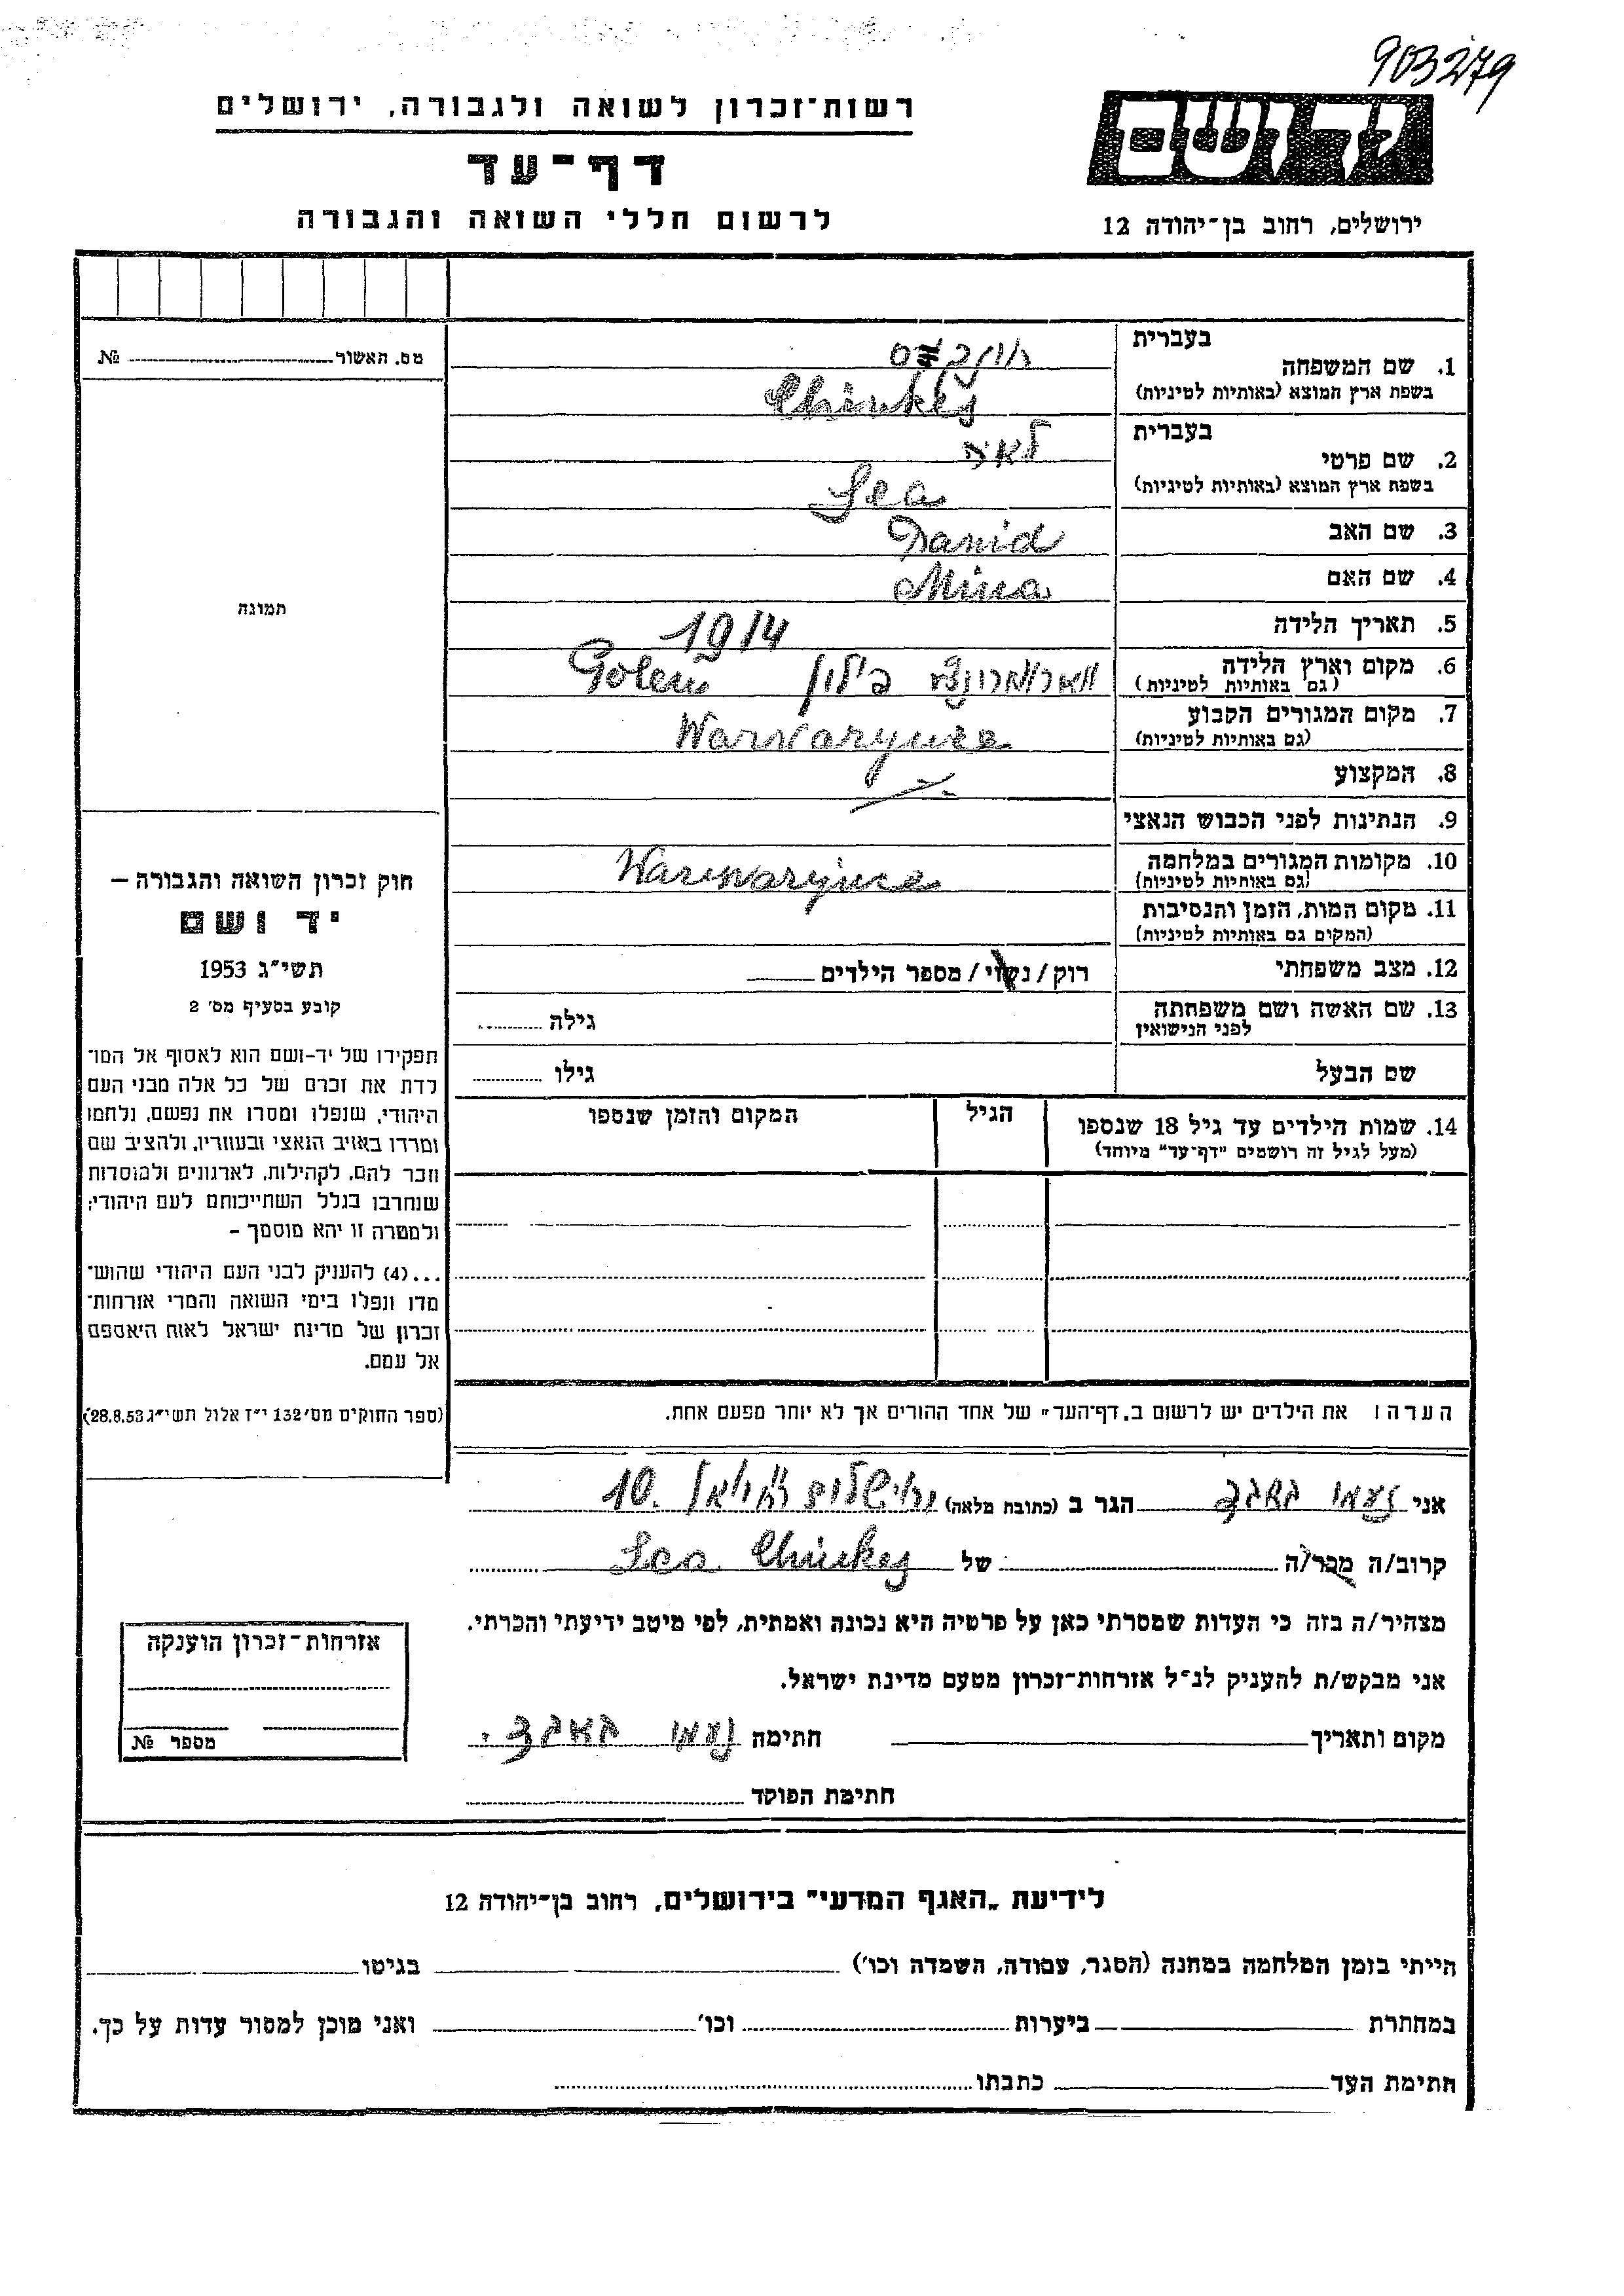 903279
רשות־זכרון לשואה ולגבורה, ירושלים
דף־עד
לרשום חללי השואה והגבורה
יד ושם
ירושלים, רחוב בן־יהודה 12
מס. האשור № 
1. שם המשפחה
בעברית
בשפת ארץ המוצא (באותיות לטיניות)
2. שם פרטי
בעברית
לאה
בשפת ארץ המוצא (באותיות לטיניות)
Lea
3. שם האב
Dawid
4. שם האם
Mina
5. תאריך הלידה
1914
6. מקום וארץ הלידה
(גם באותיות לטיניות)
פולין
7. מקום המגורים הקבוע
(גם באותיות לטיניות)
Warwarynce
8. המקצוע
9. הנתינות לפני הכבוש הנאצי
10. מקומות המגורים במלחמה
(גם באותיות לטיניות)
Warwarynce
11. מקום המות, הזמן והנסיבות
(המקום גם באותיות לטיניות)
12. מצב משפחתי
רוק/נשוי/מספר הילדים
13. שם האשה ושם משפחתה
לפני הנישואין
גילה
שם הבעל
גילו
14. שמות הילדים עד גיל 18 שנספו
(מעל לגיל זה רושמים "דף־עד" מיוחד)
הגיל
המקום והזמן שנספו
הערה: את הילדים יש לרשום ב„דף־העד" של אחד ההורים אך לא יותר מפעם אחת.
תמונה
חוק זכרון השואה והגבורה —
יד ושם
תשי"ג 1953
קובע בסעיף מס' 2
תפקידו של יד-ושם הוא לאסוף אל המו־
לדת את זכרם של כל אלה מבני העם
היהודי, שנפלו ומסרו את נפשם, נלחמו
ומרדו באויב הנאצי ובעוזריו, ולהציב שם
וזכר להם, לקהילות, לארגונים ולמוסדות
שנחרבו בגלל השתייכותם לעם היהודי;
ולמטרה זו יהא מוסמך —
...(4) להעניק לבני העם היהודי שהוש־
מדו ונפלו בימי השואה והמרי אזרחות־
זכרון של מדינת ישראל לאות היאספם
אל עמם.
(ספר החוקים מס' 132 י"ז אלול תשי"ג 28.8.53)
אני הגר ב (כתובת מלאה) ירושלים 10.
קרוב/ה מכר/ה של Lea
מצהיר/ה בזה כי העדות שמסרתי כאן על פרטיה היא נכונה ואמתית, לפי מיטב ידיעתי והכרתי.
אני מבקש/ת להעניק לנ"ל אזרחות־זכרון מטעם מדינת ישראל.
מקום ותאריך חתימה
חתימת הפוקד
אזרחות־זכרון הוענקה
מספר №
לידיעת „האגף המדעי" בירושלים, רחוב בן־יהודה 12
הייתי בזמן המלחמה במחנה (הסגר, עבודה, השמדה וכו') בגיטו
במחתרת ביערות וכו' ואני מוכן למסור עדות על כך.
חתימת העד כתבתו